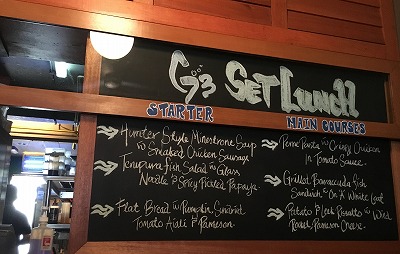 G3 SET LUNCH
STARTER
Hunter Style Minestrone Soup
w Smoked Chicken Sausage
Tempura Fish Salad w Glass
Noodle & Spicy Pickled Papaya
Flat Bread w Pumpkin
Tomato Aioli &
MAIN COURSES
Penne Pasta w Crispy Chicken
In Tomato Sauce
Grilled Barracuda Fish
Sandwich On A White Loaf
Potato & Leek w Wild
Parmesan Cheese